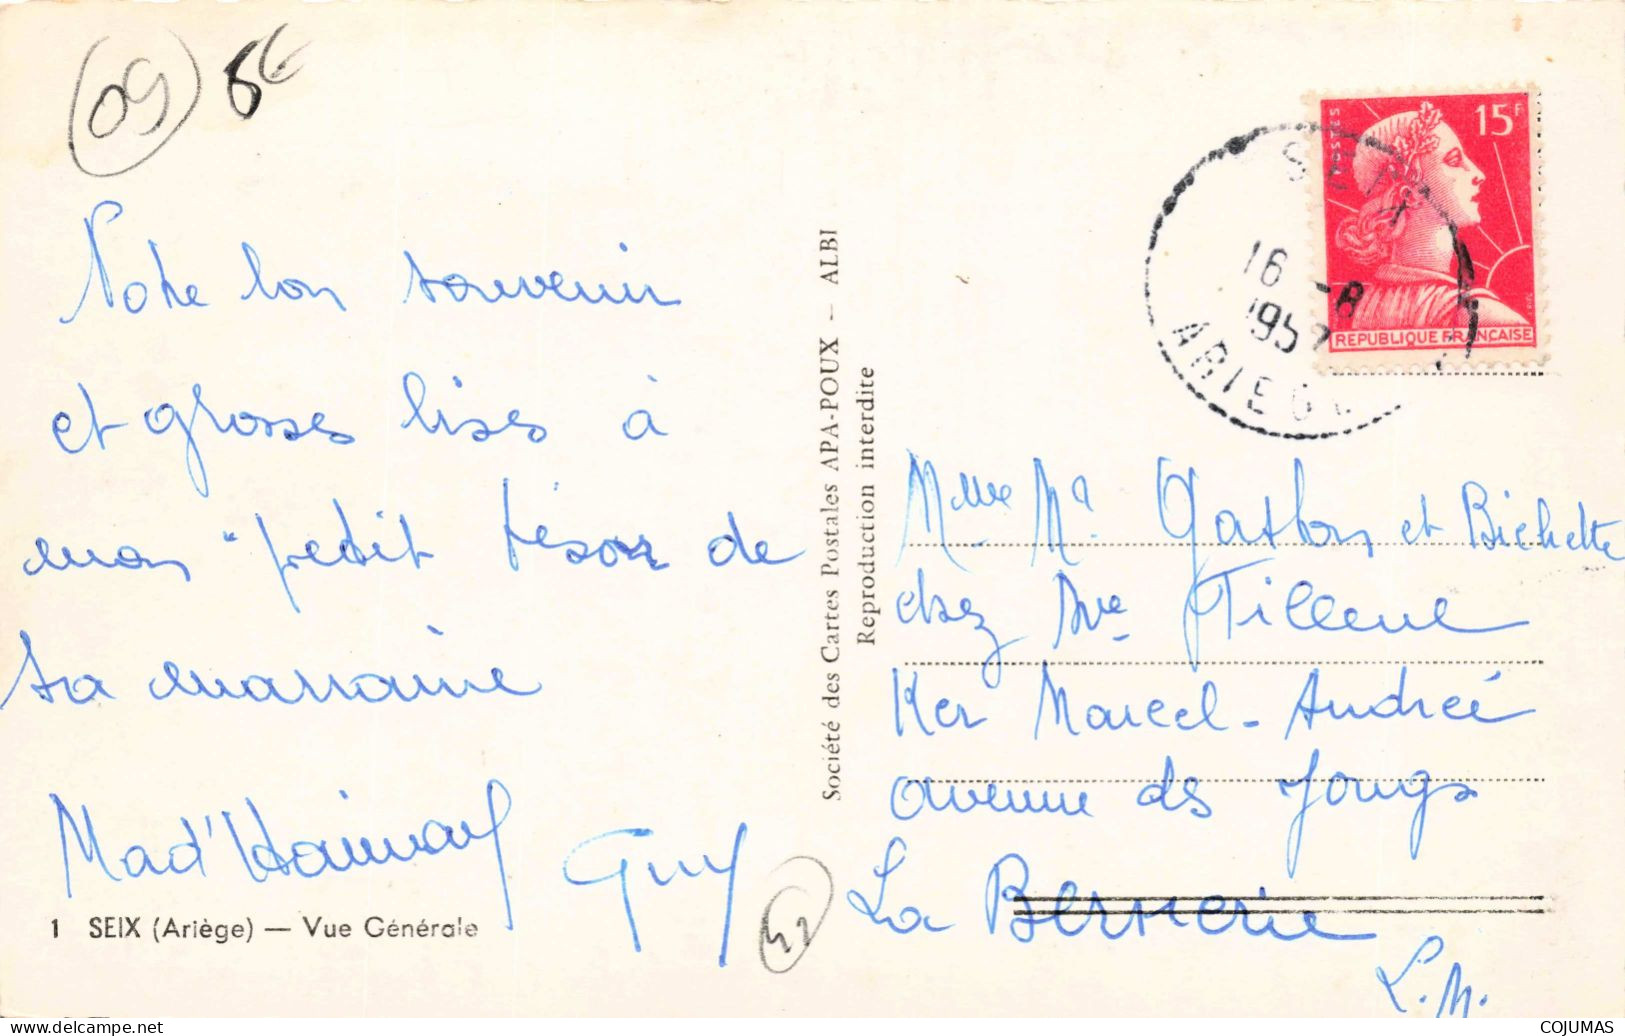 09 8€
Notre bon souvenir
et grosses bises à
mon "petit trésor de
sa marraine
Guy
1 SEIX (Ariège) — Vue Générale
Société des Cartes Postales APA-POUX — ALBI
Reproduction interdite
POSTES
15F
REPUBLIQUE FRANÇAISE
SEIX
16 -8
1957
ARIEGE
Mme Mr Gaston et Bichette
chez Mme
Ker Marcel-Andréé
avenue des Joncs
La Bernerie
L.M.
COJUMAS